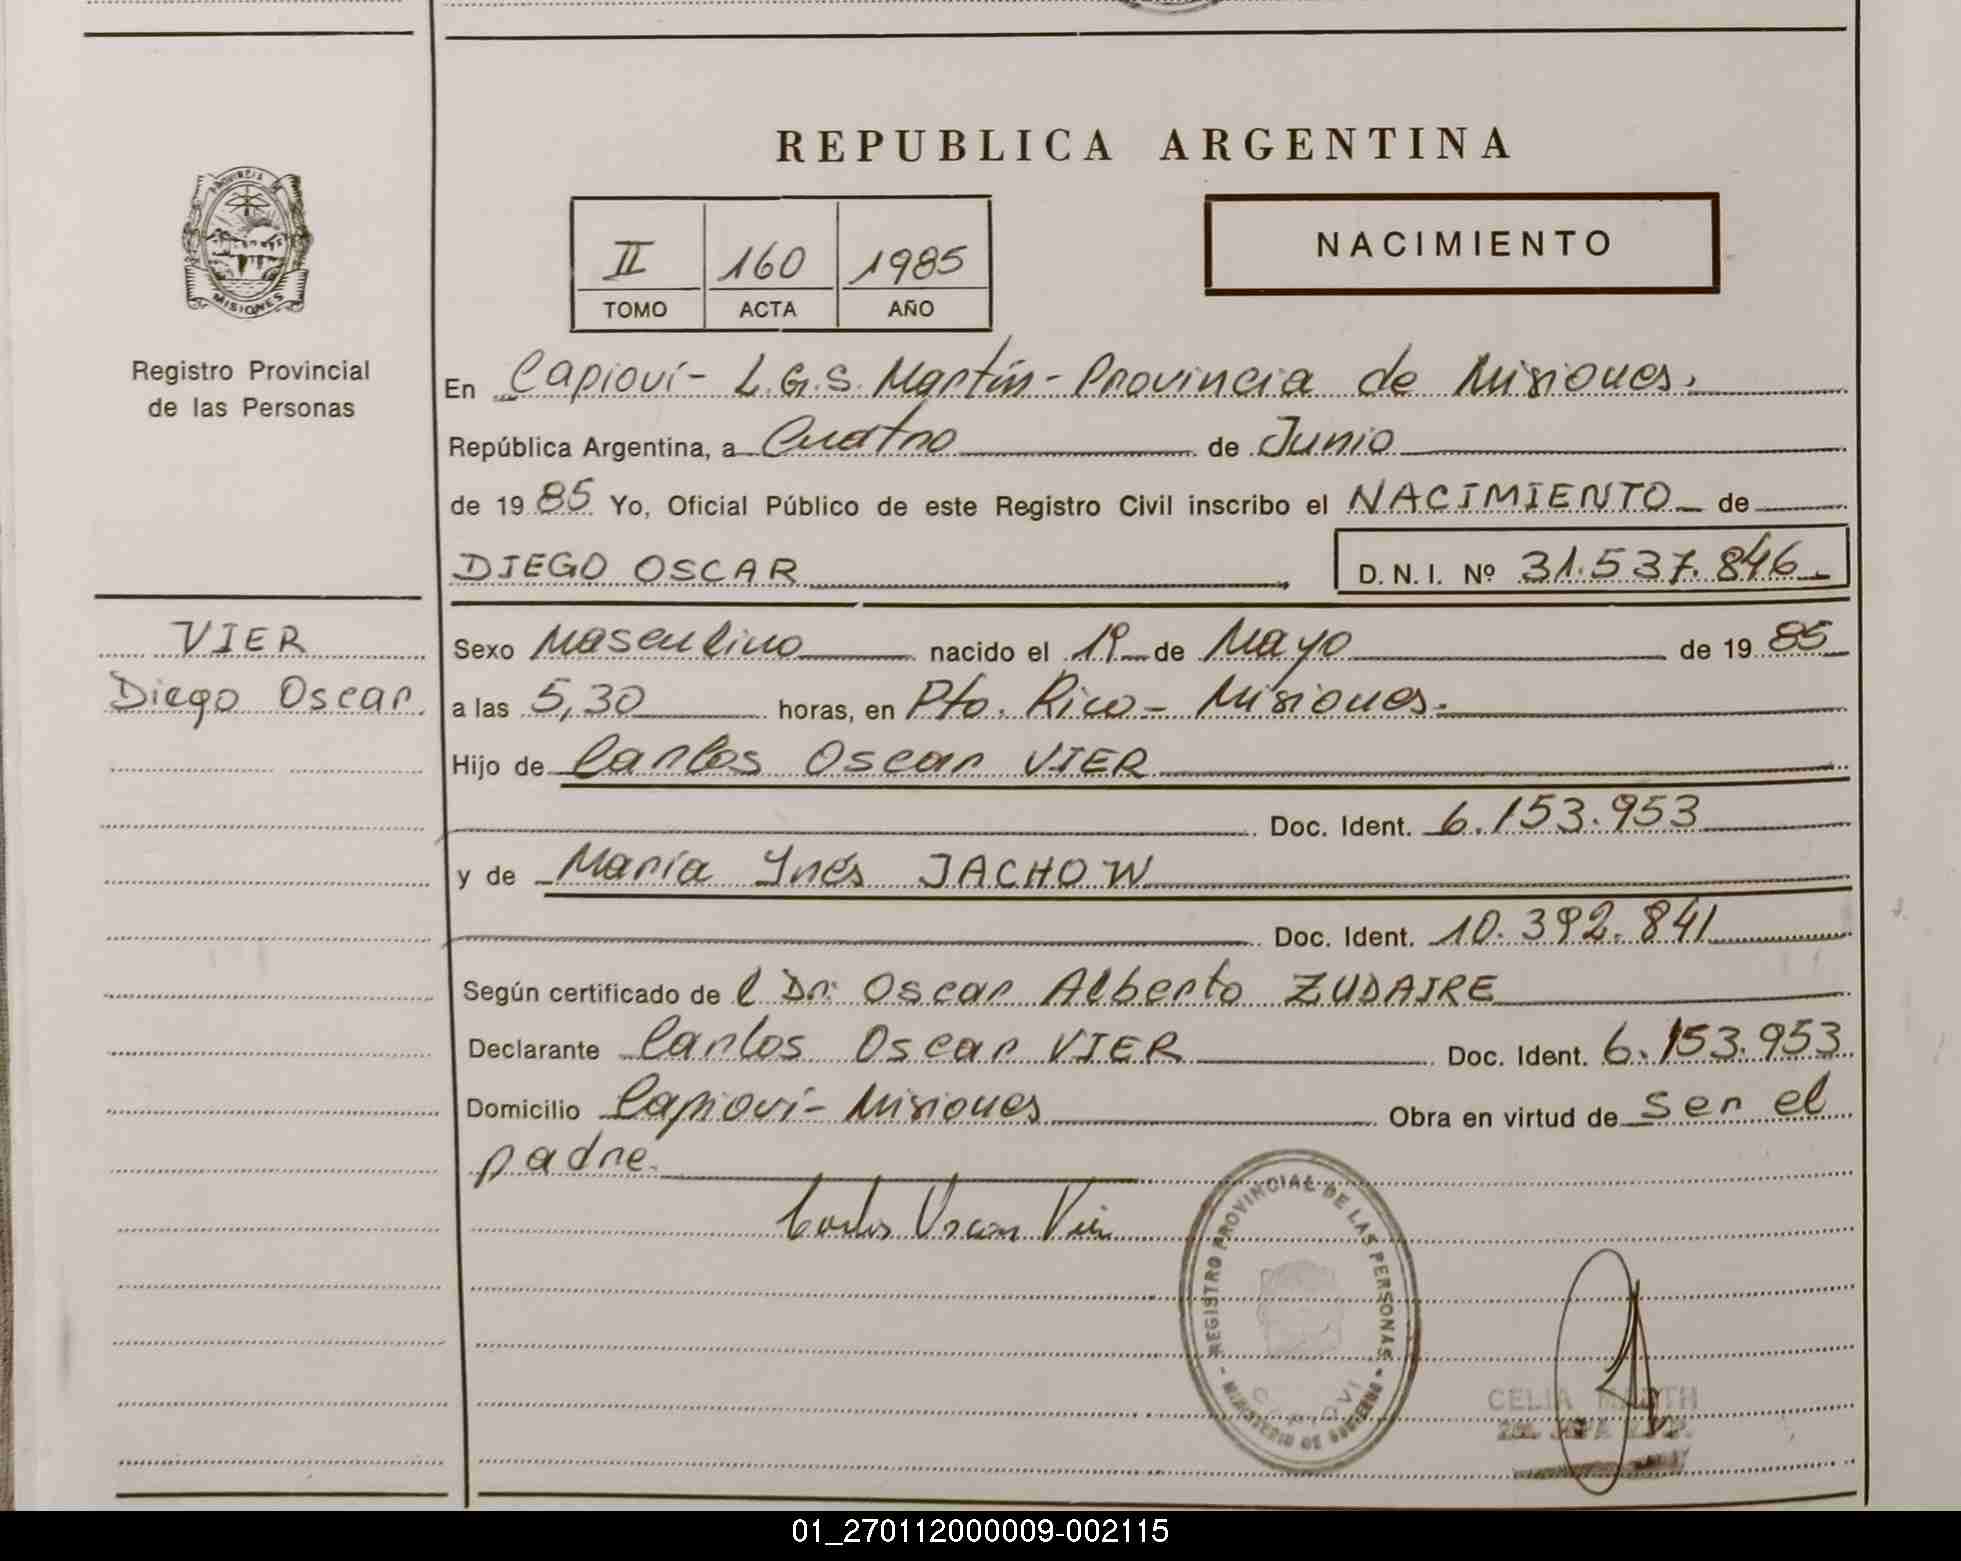 REPUBLICA ARGENTINA
PROVINCIA DE
MISIONES
Registro Provincial
de las Personas
II 160 1985
TOMO ACTA AÑO
NACIMIENTO
En Capioví- L.G.S. Martín- Provincia de Misiones.
República Argentina, a Cuatro de Junio
de 1985 Yo, Oficial Público de este Registro Civil inscribo el NACIMIENTO de
DIEGO OSCAR D.N.I. Nº 31.537.846
VIER
Diego Oscar
Sexo Masculino nacido el 19 de Mayo de 1985
a las 5,30 horas, en Pto. Rico- Misiones.
Hijo de Carlos Oscar VIER
Doc. Ident. 6.153.953
y de María Inés JACHOW
Doc. Ident. 10.392.841
Según certificado de l Dr. Oscar Alberto ZUDAIRE
Declarante Carlos Oscar VIER Doc. Ident. 6.153.953
Domicilio Capioví- Misiones Obra en virtud de ser el
padre.
Carlos Oscar Vier
REGISTRO PROVINCIAL DE LAS PERSONAS
MINISTERIO DE GOBIERNO
CAPIOVI
CELIA
01_270112000009-002115